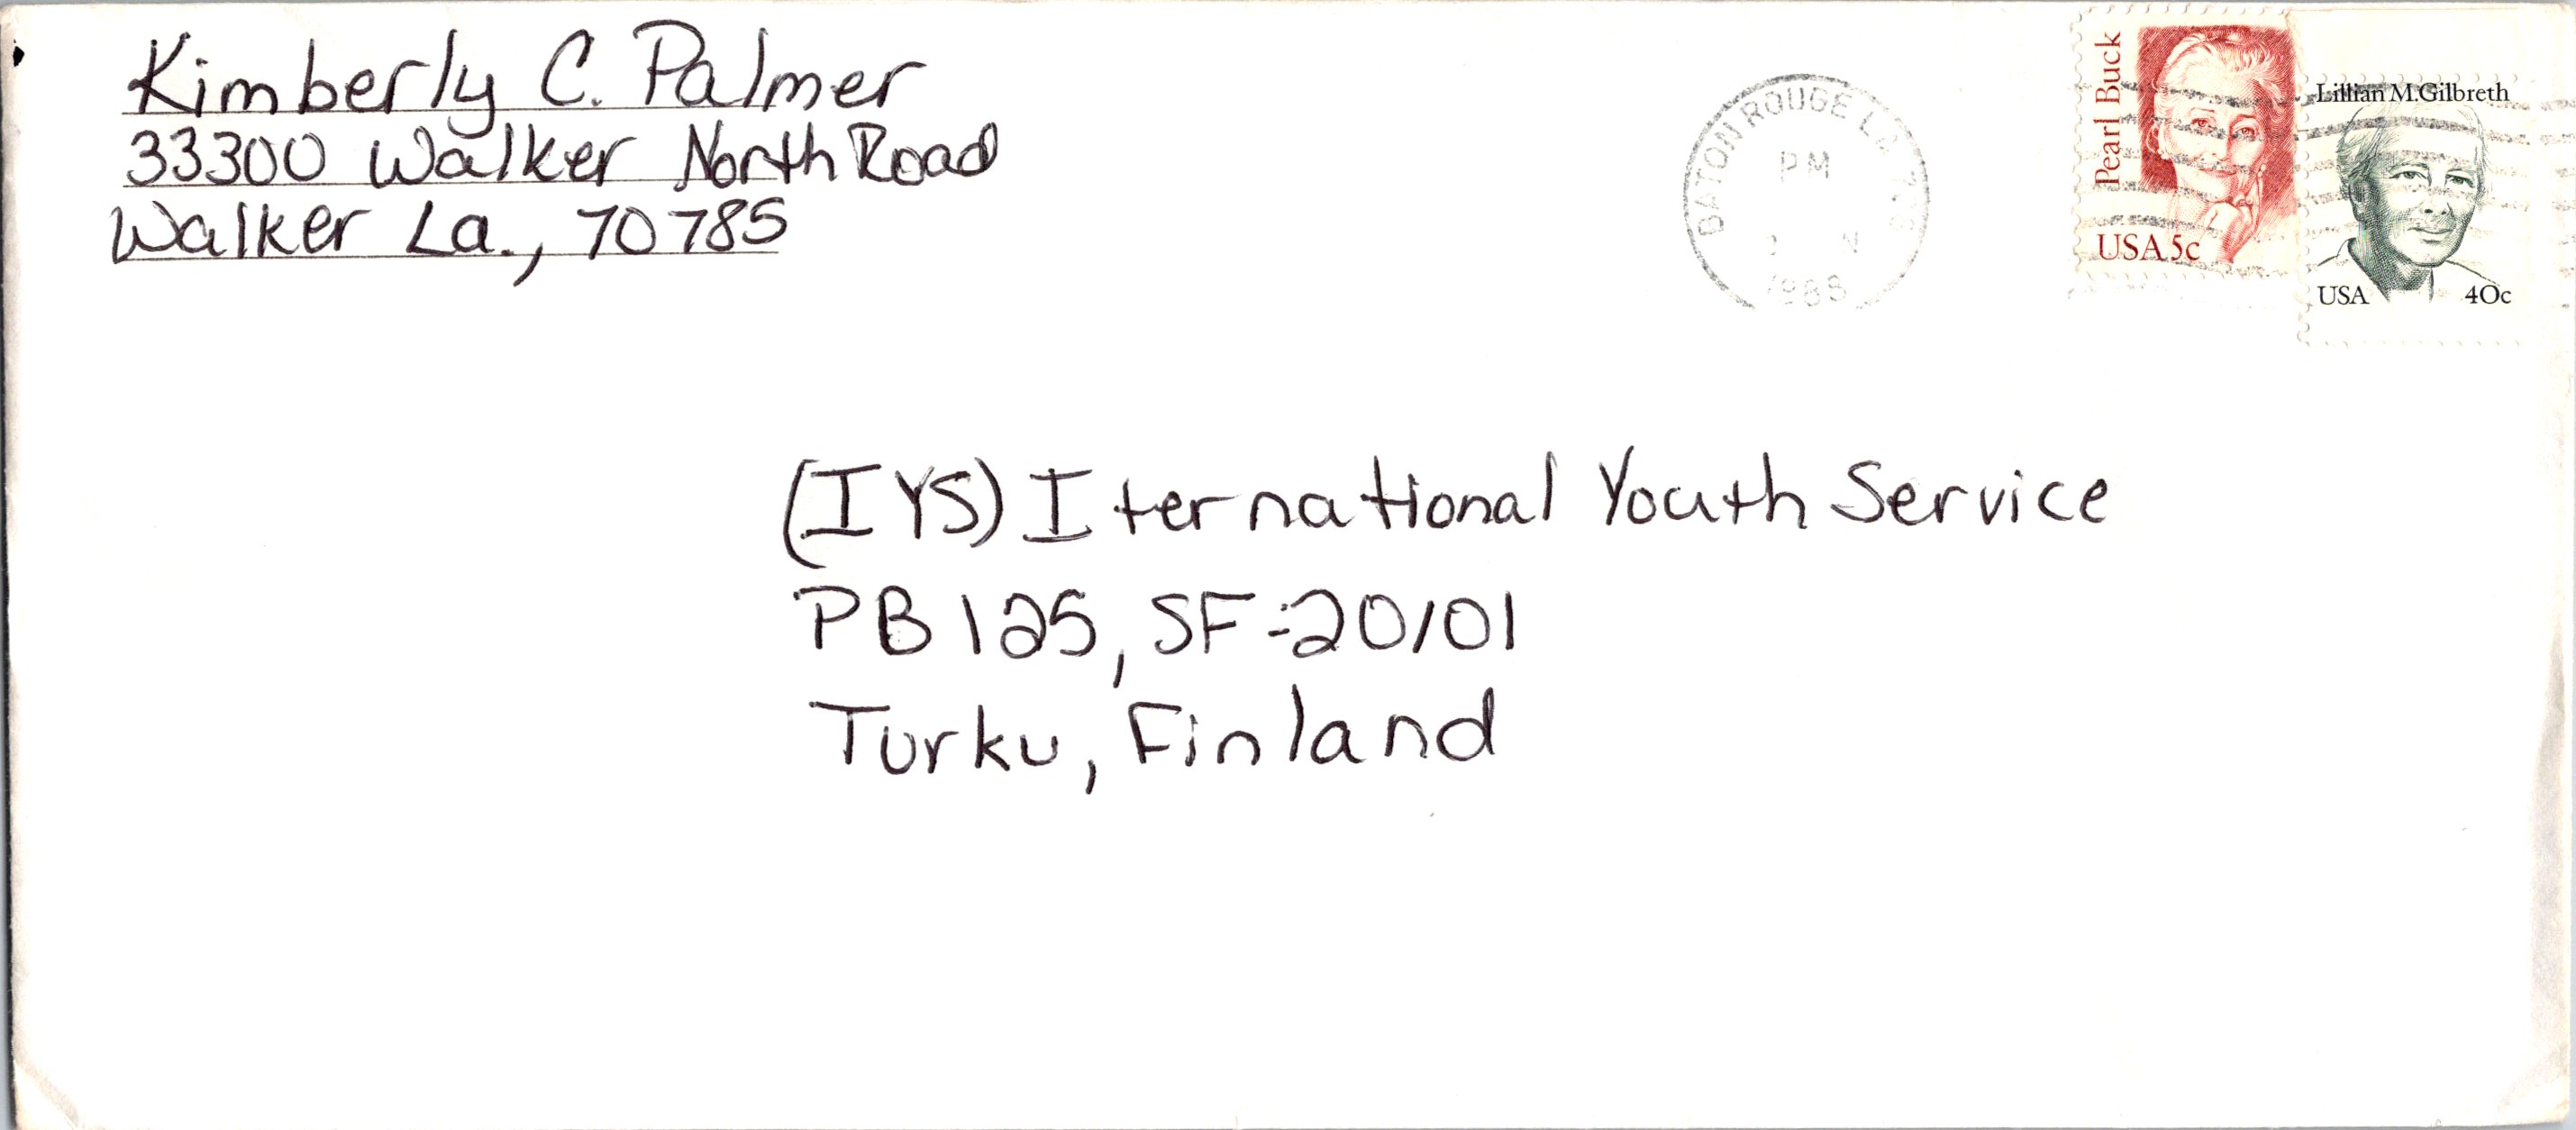 Kimberly C. Palmer
33300 Walker North Road
Walker La., 70785
BATON ROUGE LA
PM
Pearl Buck
USA 5c
Lillian M. Gilbreth
USA 40c
(IYS) Iternational Youth Service
PB 125, SF-20101
Turku, Finland